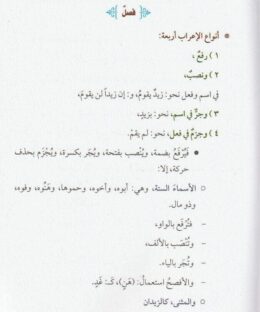 فصلٌ
• أنواع الإعراب أربعة:
١) رفعٌ،
٢) ونصبٌ،
في اسم وفعل نحو: زيدٌ يقومُ، و: إن زيداً لن يقومَ،
٣) وجرٌّ في اسم، نحو: بزيدٍ،
٤) وجزمٌ في فعل، نحو: لم يقمْ.
• فيُرْفَعُ بضمة، ويُنْصب بفتحة، ويُجَر بكسرة، ويُجْزَم بحذف
حركة، إلا:
○ الأسماءَ الستة، وهي: أبوه، وأخوه، وحموها، وهَنُوه، وفوه،
وذو مال.
– فتُرْفَع بالواو،
– وتُنْصَب بالألف،
– وتُجَر بالياء.
– والأفصحُ استعمالُ: (هَنٍ)، كـ: غَدٍ.
○ والمثنى، كالزيدان